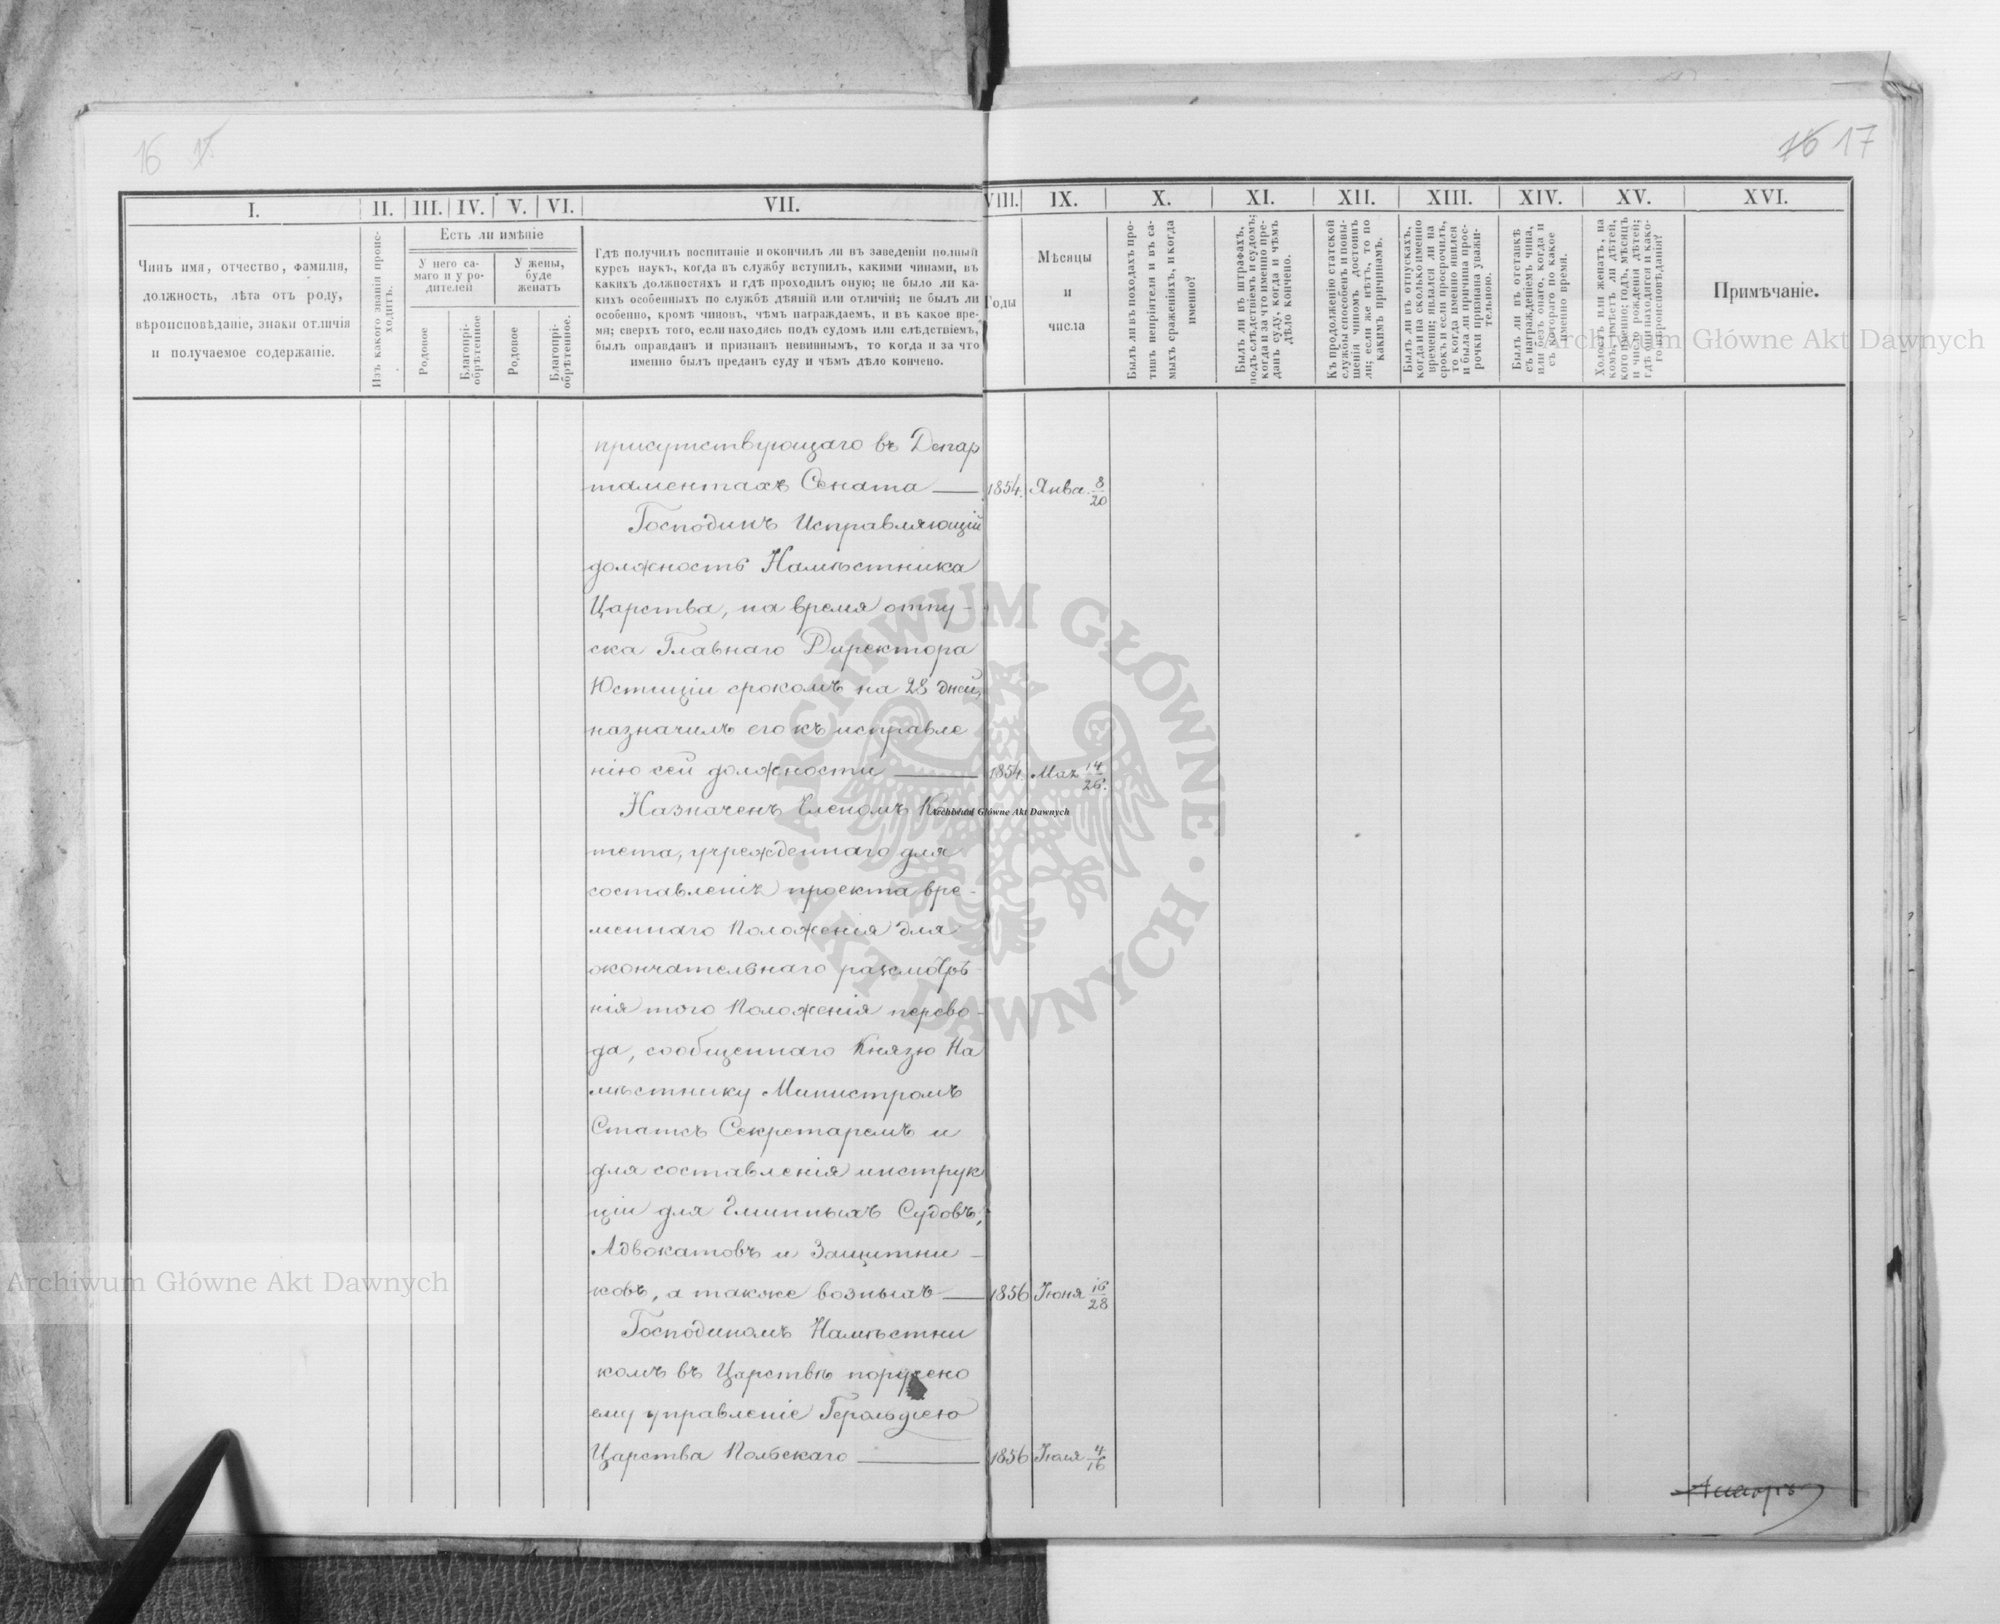 16
16 17
I.
II.
III.
IV.
V.
VI.
VII.
VIII.
IX.
X.
XI.
XII.
XIII.
XIV.
XV.
XVI.
Чинъ имя, отчество, фамилія,
должность, лѣта отъ роду,
вѣроисповѣданіе, знаки отличія
и получаемое содержаніе.
Изъ какого званія проис-
ходитъ.
Есть ли имѣніе
У него са-
маго и у ро-
дителей
У жены,
буде
женатъ
Родовое
Благопрі-
обрѣтенное
Родовое
Благопрі-
обрѣтенное.
Гдѣ получилъ воспитаніе и окончилъ ли въ заведеніи полный
курсъ наукъ, когда въ службу вступилъ, какими чинами, въ
какихъ должностяхъ и гдѣ проходилъ оную; не было ли ка-
кихъ особенныхъ по службѣ дѣяній или отличій; не былъ ли
особенно, кромѣ чиновъ, чѣмъ награждаемъ, и въ какое вре-
мя; сверхъ того, если находясь подъ судомъ или слѣдствіемъ,
былъ оправданъ и признанъ невиннымъ, то когда и за что
именно былъ преданъ суду и чѣмъ дѣло кончено.
Годы
Мѣсяцы
и
числа
Былъ ли въ походахъ про-
тивъ непріятеля и въ са-
мыхъ сраженіяхъ, и когда
именно?
Былъ ли въ штрафахъ,
подъ слѣдствіемъ и судомъ;
когда и за что именно пре-
данъ суду, когда и чѣмъ
дѣло кончено.
Къ продолженію статской
службы способенъ и повы-
шенія чиномъ достоинъ
ли; если же нѣтъ, то по
какимъ причинамъ.
Былъ ли въ отпускахъ,
когда и на сколько именно
времени; являлся ли на
срокъ и если просрочилъ,
то когда именно явился
и была ли причина прос-
рочки признана уважи-
тельною.
Былъ ли въ отставкѣ
съ награжденіемъ чина,
или безъ онаго, когда и
съ котораго по какое
именно время.
Холостъ или женатъ, на
комъ, имѣетъ ли дѣтей,
кого именно; годъ, мѣсяцъ
и число рожденія дѣтей;
гдѣ они находятся и како-
го вѣроисповѣданія?
Примѣчаніе.
присутствующаго въ Депар
таментахъ Сената — 1854. Янва. 8/20
Господинъ Исправляющій
должность Намѣстника
Царства, на время отпу-
ска Главнаго Директора
Юстиціи срокомъ на 28 дней,
назначилъ его къ исправле
нію сей должности — 1854 Мая 14/26.
Назначенъ Членомъ
тета, учрежденнаго для
составленія проекта вре-
меннаго Положенія для
окончательнаго разсмотрѣ-
нія того Положенія перево-
да, сообщеннаго Князю На
мѣстнику Министромъ
Статсъ Секретаремъ и
для составленія инструк
ціи для Гминныхъ Судовъ,
Адвокатовъ и Защитни-
ковъ, а также возныхъ — 1856 Іюня 16/28
Господиномъ Намѣстни
комъ въ Царствѣ поручено
ему управленіе Герольдіею
Царства Польскаго — 1856 Іюля 4/16
Archiwum Główne Akt Dawnych
Archiwum Główne Akt Dawnych
Archiwum Główne Akt Dawnych
ARCHIWUM GŁÓWNE · AKT DAWNYCH ·